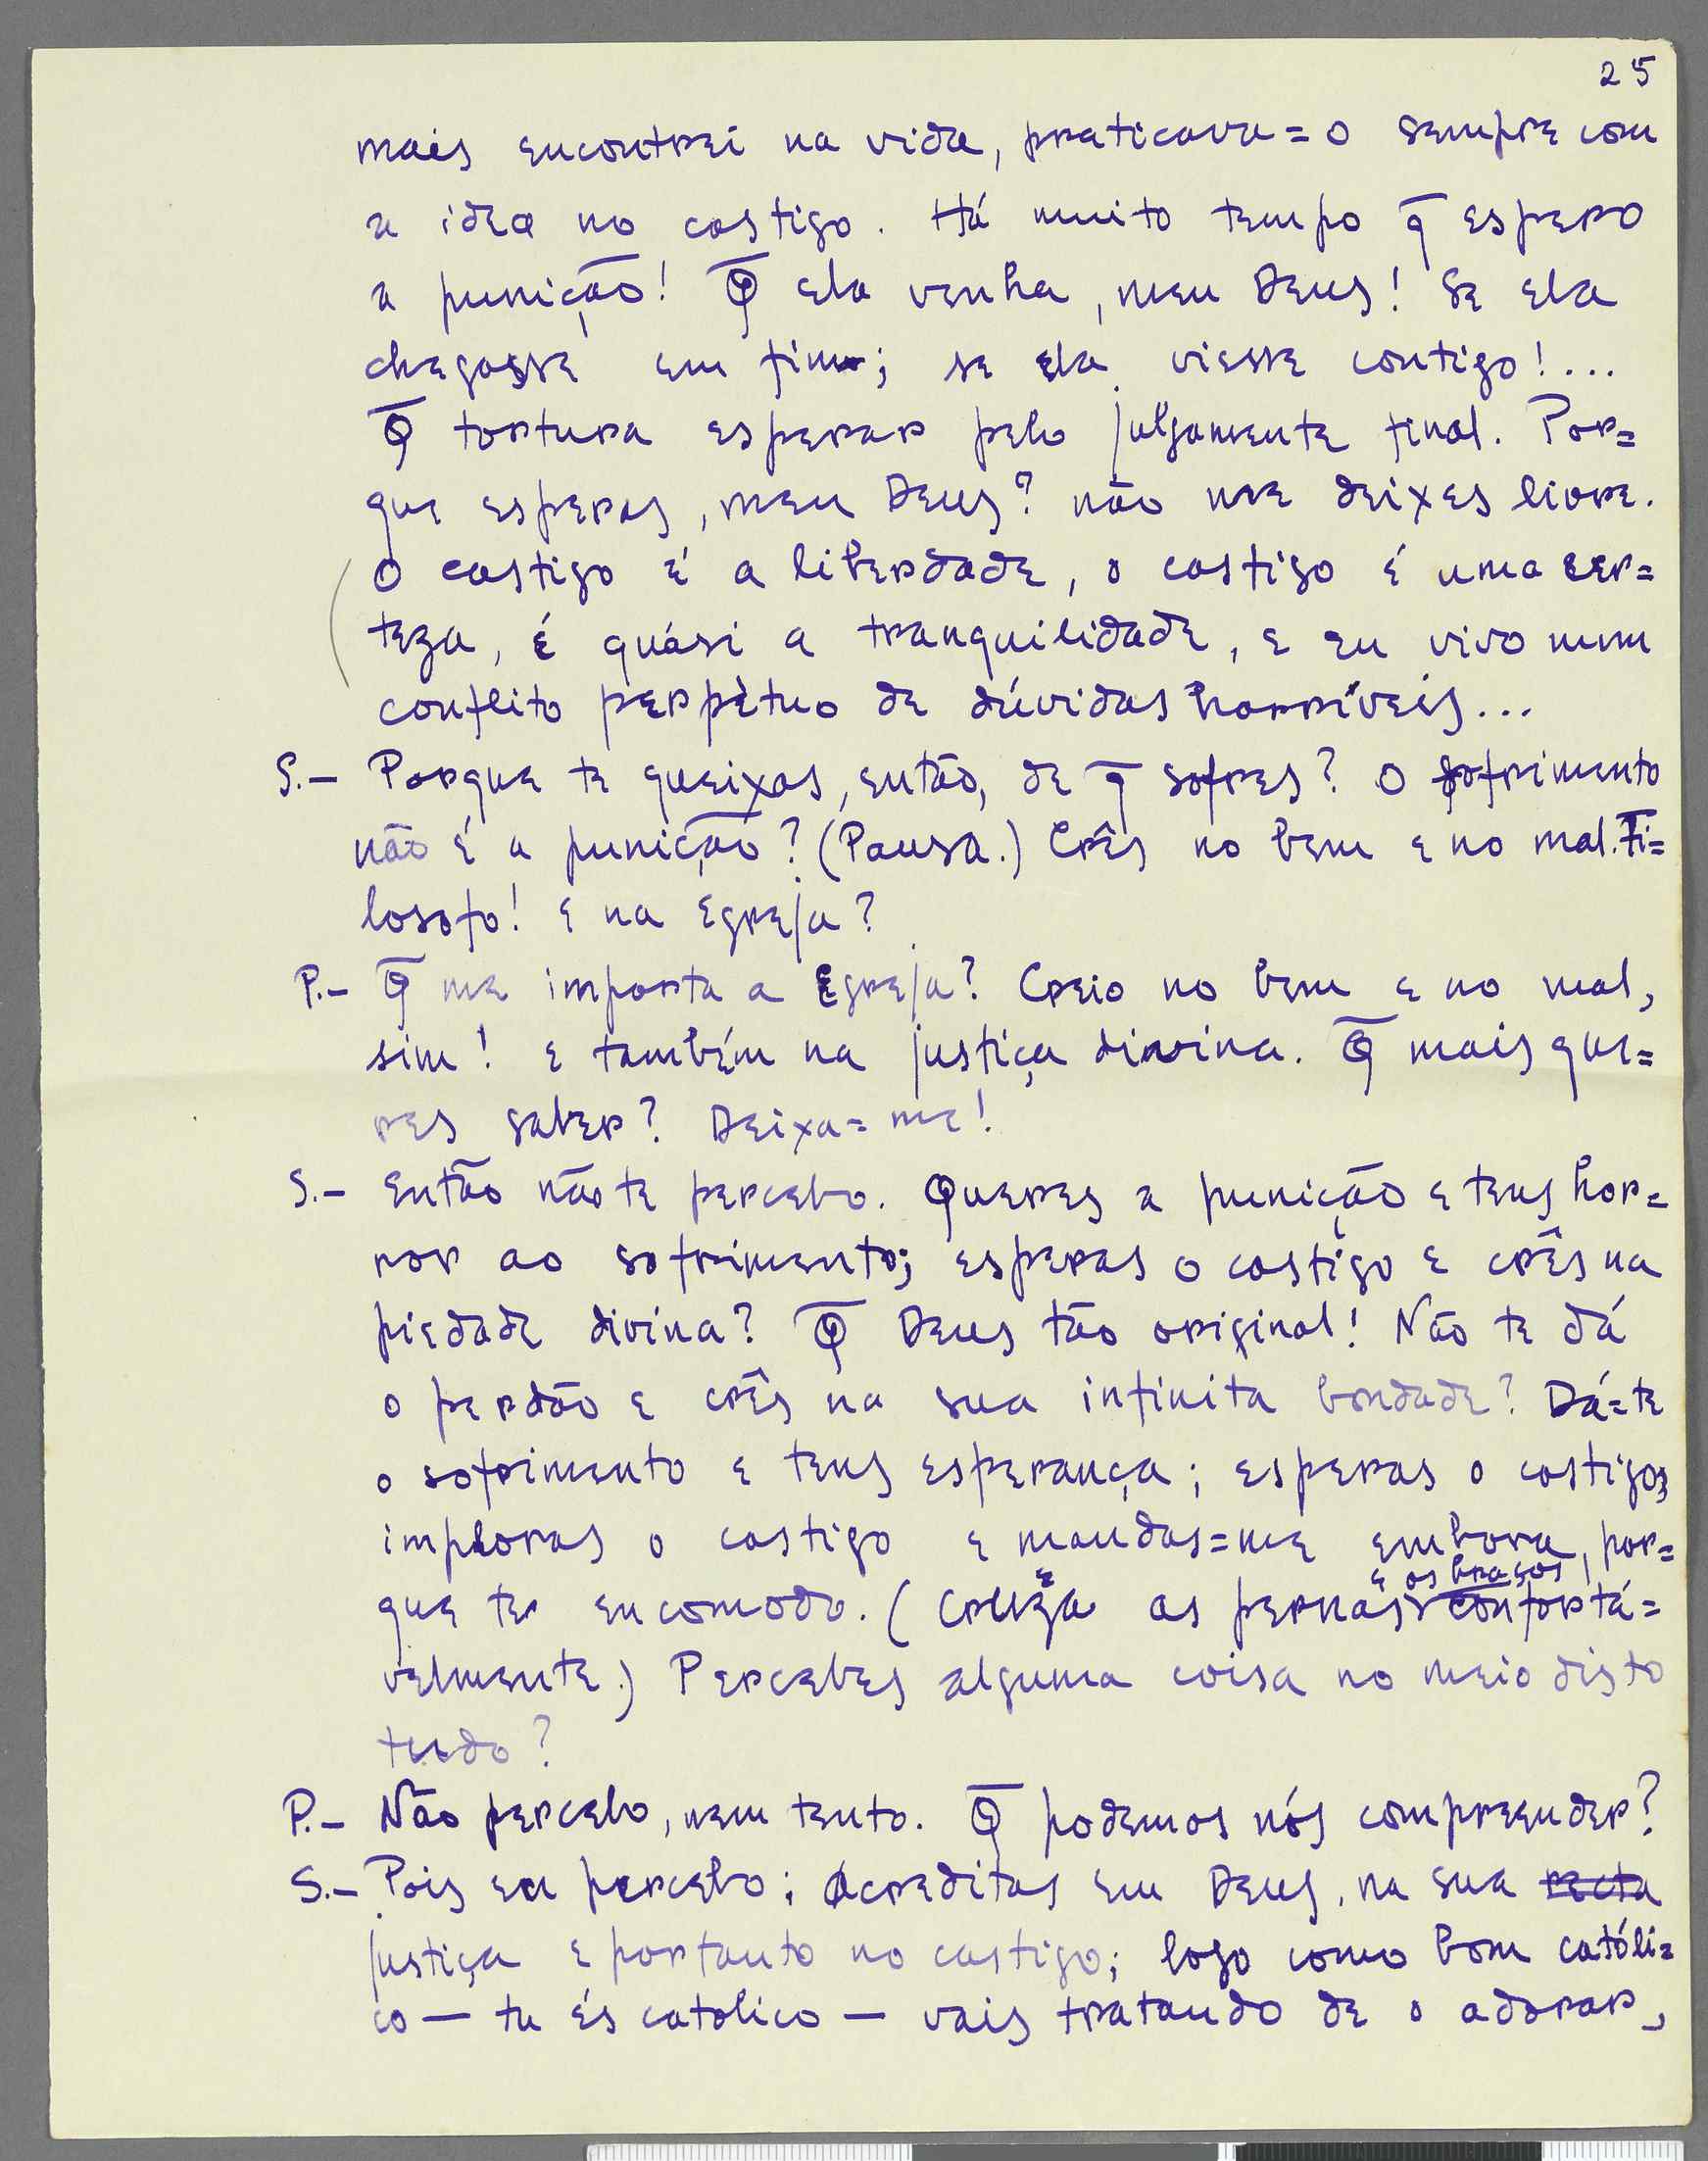 25
mais encontrei na vida, praticava=o sempre com
a idea no castigo. Há muito tempo q̄ espero
a punição! Q̄ ela venha, meu Deus! Se ela
chegasse em fim; se ela viesse contigo!...
Q̄ tortura esperar pelo julgamente final. Por=
que esperas, meu Deus? não me deixes livre.
O castigo é a liberdade, o castigo é uma cer=
teza, é quási a tranquilidade, e eu vivo num
conflito perpètuo de dúvidas horríveis...
S.– Porque te queixas, então, de q̄ sofres? O sofrimento
não é a punição? (Pausa.) Crês no bem e no mal. Fi=
losofo! E na Egreja?
P.– Q̄ me importa a Egreja? Creio no bem e no mal,
sim! E também na justiça divina. Q̄ mais que=
res saber? Deixa=me!
S.– Então não te percebo. Queres a punição e tens hor=
ror ao sofrimento; esperas o castigo e crês na
piedade divina? Q̄ Deus tão original! Não te dá
o perdão e crês na sua infinita bondade? Dá=te
o sofrimento e tens esperança; esperas o castigo,
imploras o castigo e mandas=me embora, por=
e os braços
que te encomodo. (Cruza as pernas confortá=
velmente.) Percebes alguma coisa no meio disto
tudo?
P.– Não percebo, nem tento. Q̄ podemos nós compreender?
S.– Pois eu percebo; Acreditas em Deus, na sua recta
justiça e portanto no castigo; logo como bom católi=
co — tu és catolico — vais tratando de o adorar,